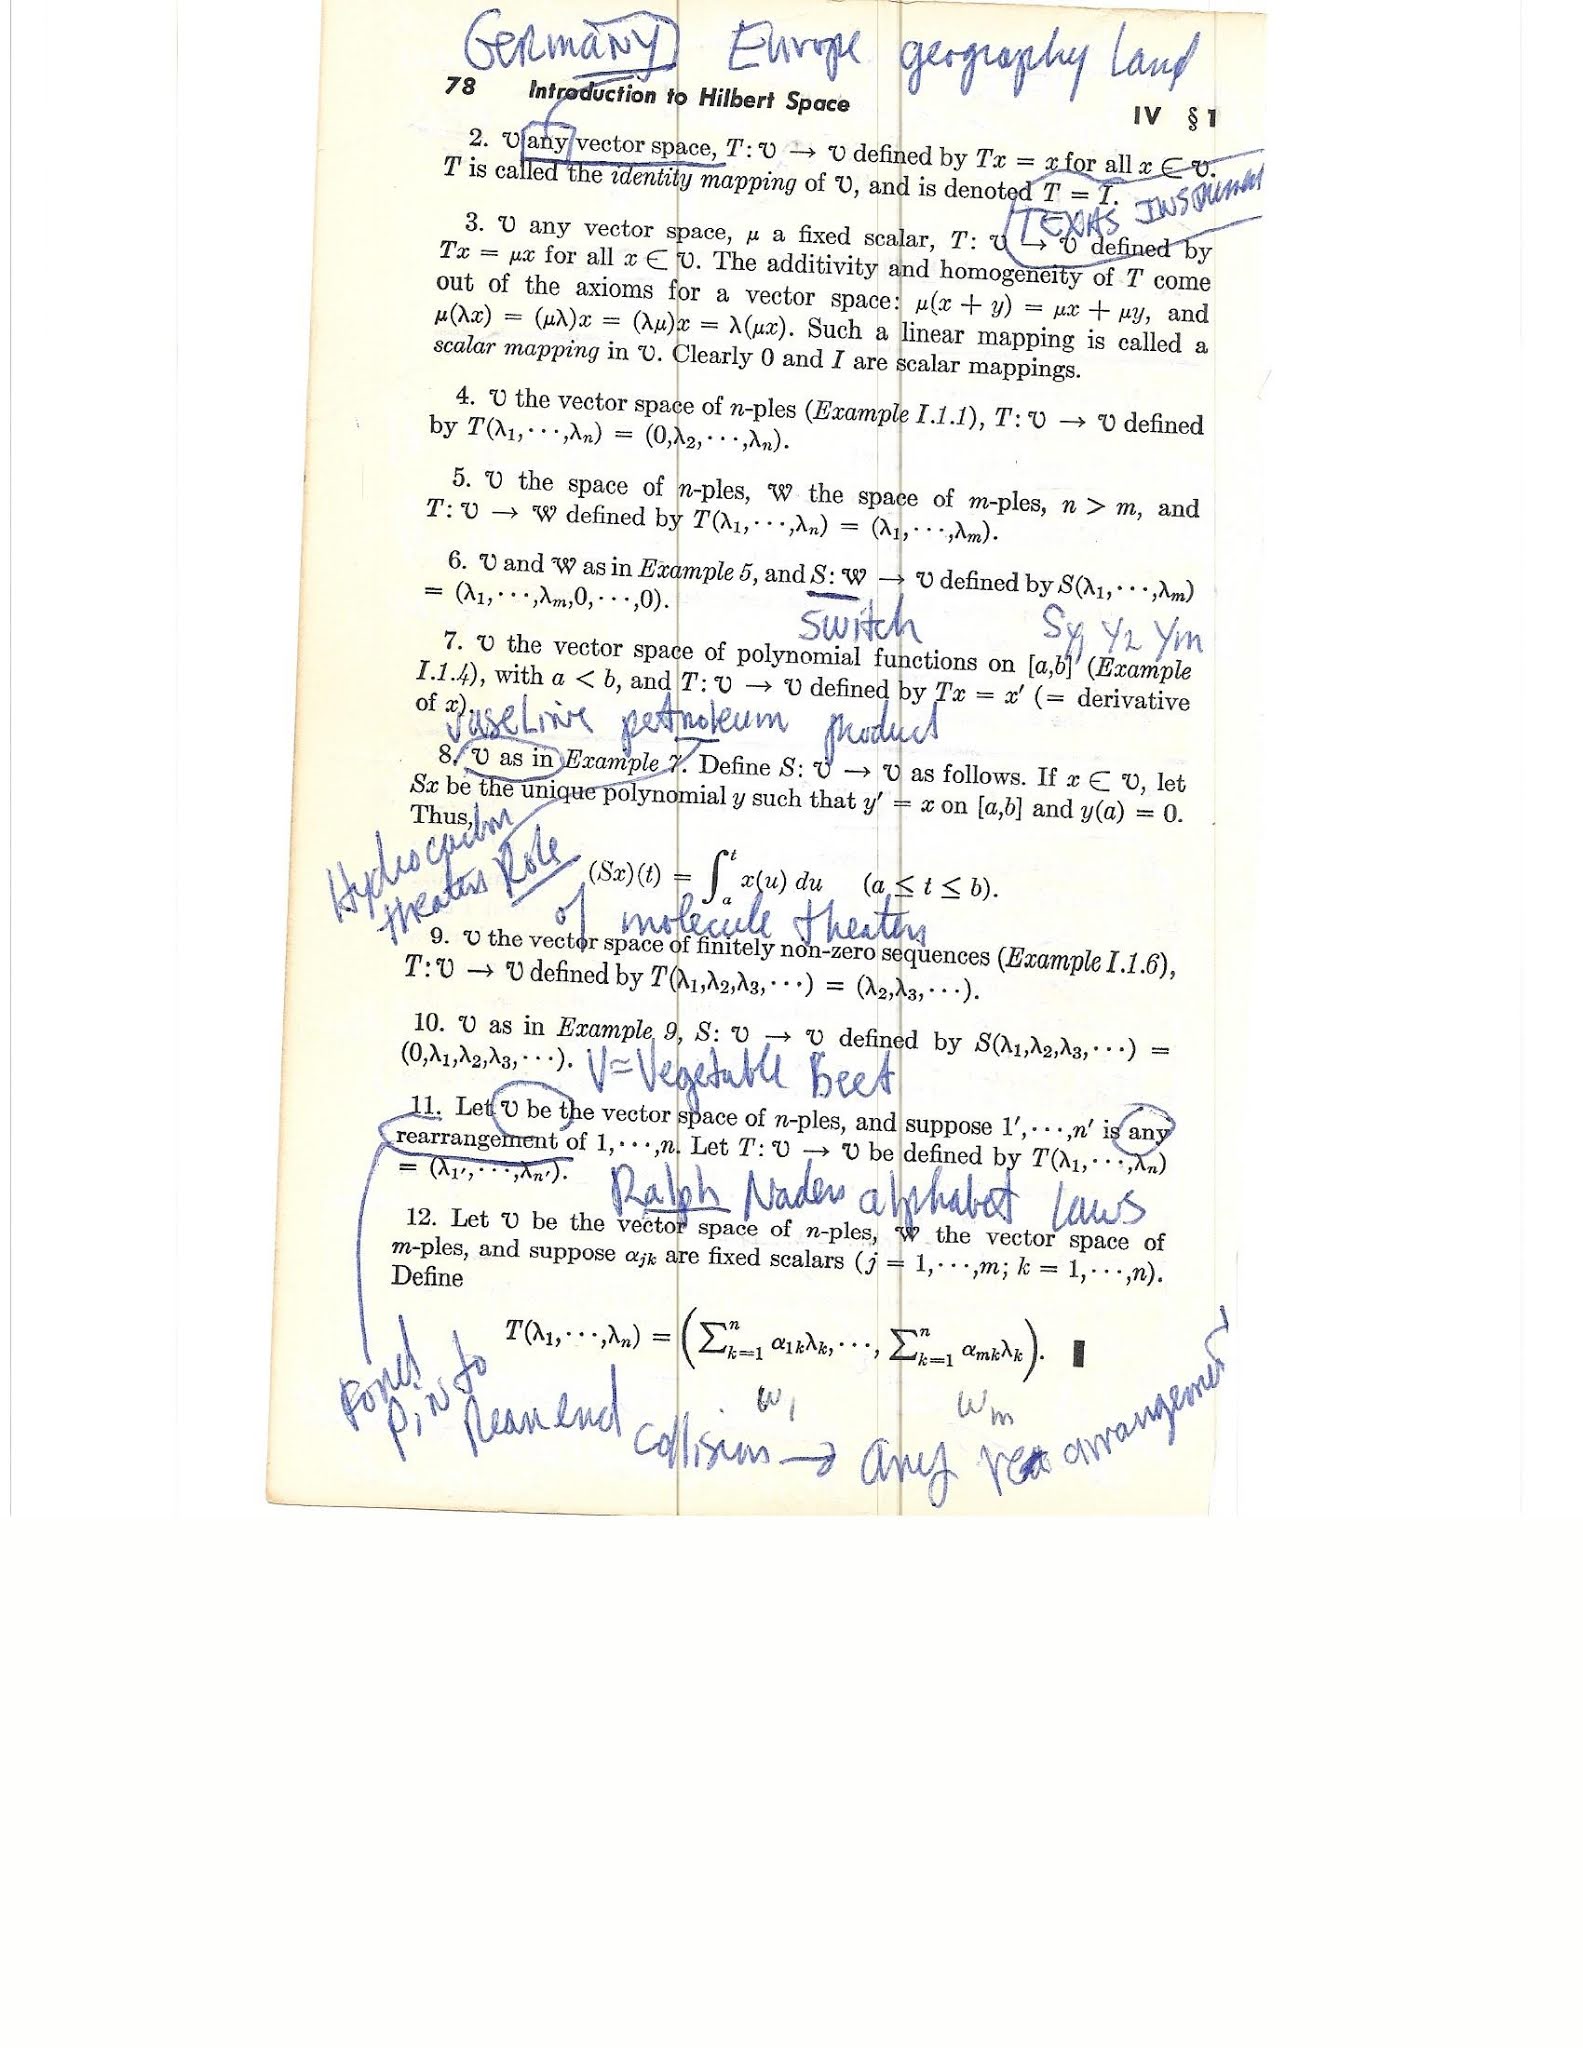 GERMANY Europe geography Land
78 Introduction to Hilbert Space IV § 1
2. 𝒱 any vector space, T: 𝒱 → 𝒱 defined by Tx = x for all x ∈ 𝒱.
T is called the identity mapping of 𝒱, and is denoted T = I.
TEXAS
3. 𝒱 any vector space, μ a fixed scalar, T: 𝒱 → 𝒱 defined by
Tx = μx for all x ∈ 𝒱. The additivity and homogeneity of T come
out of the axioms for a vector space: μ(x + y) = μx + μy, and
μ(λx) = (μλ)x = (λμ)x = λ(μx). Such a linear mapping is called a
scalar mapping in 𝒱. Clearly 0 and I are scalar mappings.
4. 𝒱 the vector space of n-ples (Example I.1.1), T: 𝒱 → 𝒱 defined
by T(λ₁,⋯,λₙ) = (0,λ₂,⋯,λₙ).
5. 𝒱 the space of n-ples, 𝒲 the space of m-ples, n > m, and
T: 𝒱 → 𝒲 defined by T(λ₁,⋯,λₙ) = (λ₁,⋯,λₘ).
6. 𝒱 and 𝒲 as in Example 5, and S: 𝒲 → 𝒱 defined by S(λ₁,⋯,λₘ)
= (λ₁,⋯,λₘ,0,⋯,0).
Switch Sy₁ Y₂ Ym
7. 𝒱 the vector space of polynomial functions on [a,b] (Example
I.1.4), with a < b, and T: 𝒱 → 𝒱 defined by Tx = x′ (= derivative
of x).
VaseLine petroleum product
8. 𝒱 as in Example 7. Define S: 𝒱 → 𝒱 as follows. If x ∈ 𝒱, let
Sx be the unique polynomial y such that y′ = x on [a,b] and y(a) = 0.
Thus,
Hydrocarbon
theaters Role
(Sx)(t) = ∫ₐᵗ x(u) du (a ≤ t ≤ b).
of molecule theaters
9. 𝒱 the vector space of finitely non-zero sequences (Example I.1.6),
T: 𝒱 → 𝒱 defined by T(λ₁,λ₂,λ₃,⋯) = (λ₂,λ₃,⋯).
10. 𝒱 as in Example 9, S: 𝒱 → 𝒱 defined by S(λ₁,λ₂,λ₃,⋯) =
(0,λ₁,λ₂,λ₃,⋯).
V = Vegetable Beet
11. Let 𝒱 be the vector space of n-ples, and suppose 1′,⋯,n′ is any
rearrangement of 1,⋯,n. Let T: 𝒱 → 𝒱 be defined by T(λ₁,⋯,λₙ)
= (λ₁′,⋯,λₙ′).
Ralph Naders alphabet Laws
12. Let 𝒱 be the vector space of n-ples, 𝒲 the vector space of
m-ples, and suppose αⱼₖ are fixed scalars (j = 1,⋯,m; k = 1,⋯,n).
Define
T(λ₁,⋯,λₙ) = (∑ₖ₌₁ⁿ α₁ₖλₖ,⋯, ∑ₖ₌₁ⁿ αₘₖλₖ). ▮
w₁ wₘ
Ford
PiNto
Rear end collision → any rearrangement